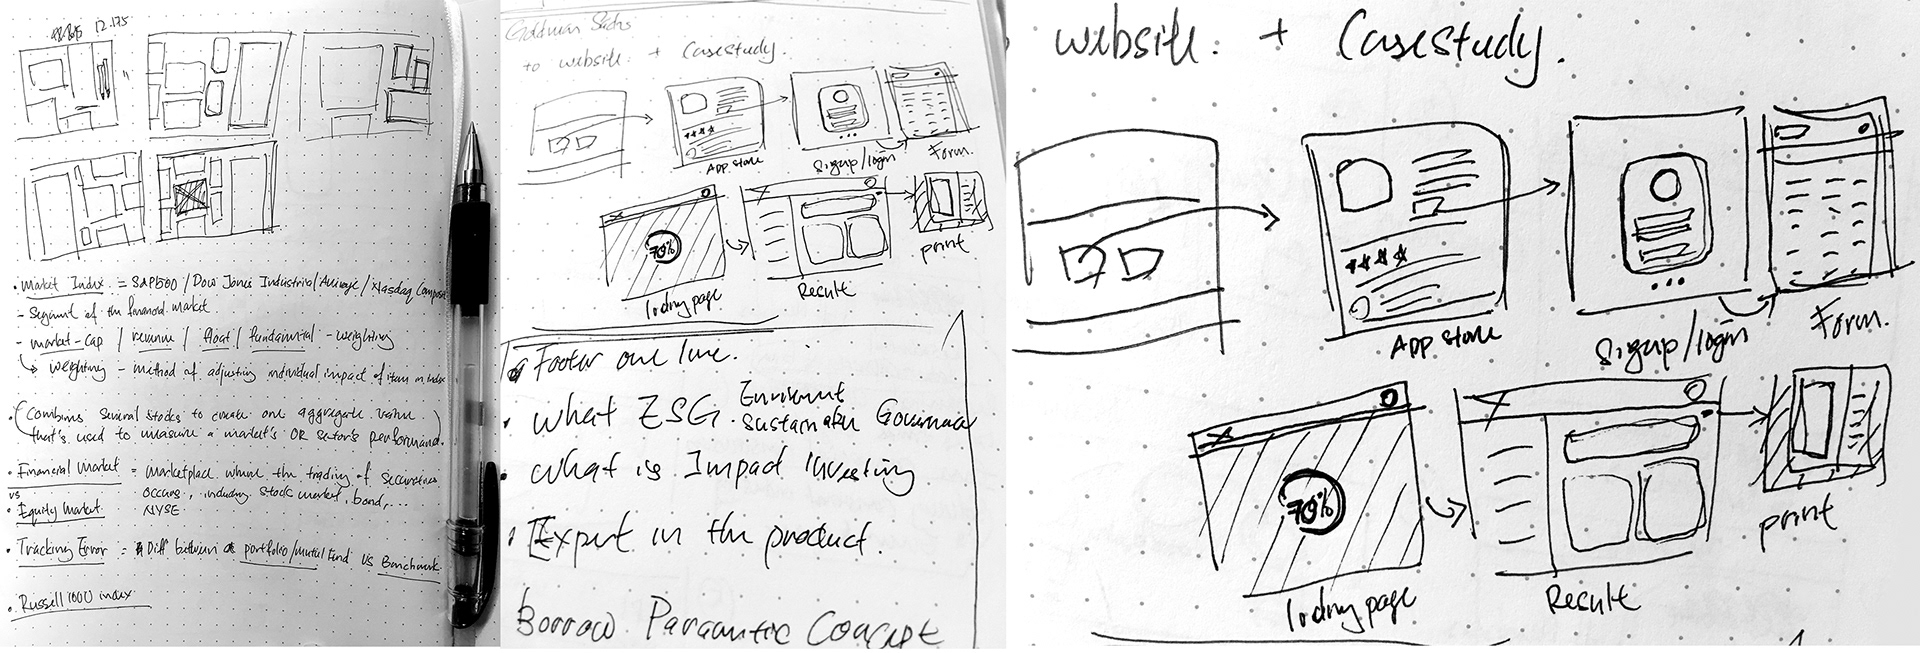 12.175
• Market Index = S&P500 / Dow Jones Industrial / Average / Nasdaq Compos
- Segment of the financial market.
- market-cap / revenue / float / fundamental - weighting
↳ weighting - method of adjusting individual impact of item on index
• (Combines several stocks to create one aggregate value.)
that's used to measure a market's OR sector's performance.
• Financial Market = marketplace where the trading of securities
vs occurs, including stock market, bond, ...
• Equity Market NYSE
• Tracking Error = Diff between a portfolio/mutual fund VS Benchmark
• Russell 1000 index
Goldman Sachs
to website + Casestudy.
App store
Signup/login
Form.
70%
loding page
Result
print
Footer one line.
• What ESG Enviroment
Sustainable Governance
• What is Impact Investing
• Expert in the product.
Borrow Concept
website + Casestudy.
App store
Signup/login
Form.
70%
loding page
Result
print